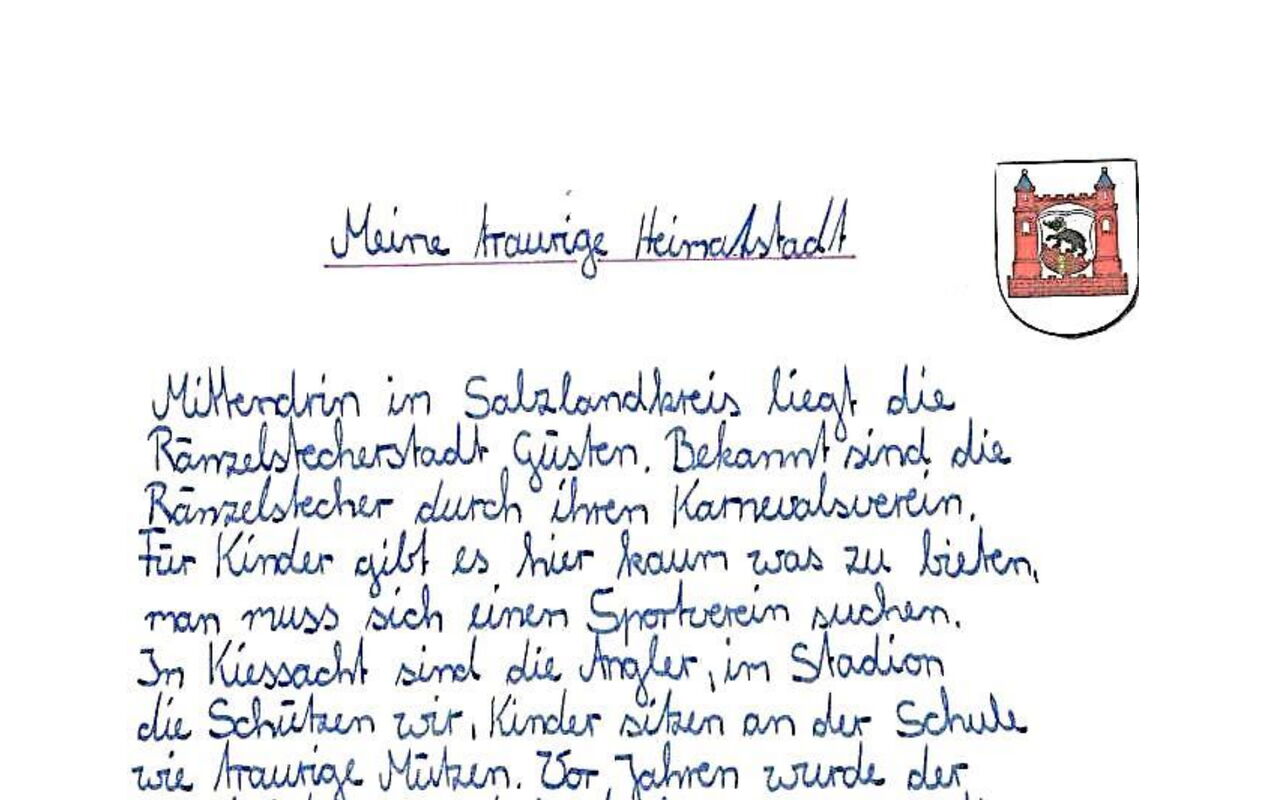 Meine traurige Heimatstadt
Mittendrin in Salzlandkreis liegt die
Ränzelstecherstadt Güsten. Bekannt sind die
Ränzelstecher durch ihren Karnevalsverein.
Für Kinder gibt es hier kaum was zu bieten,
man muss sich einen Sportverein suchen.
In Kiessacht sind die Angler, im Stadion
die Schützen wir, Kinder sitzen an der Schule
wie traurige Mützen. Vor Jahren wurde der